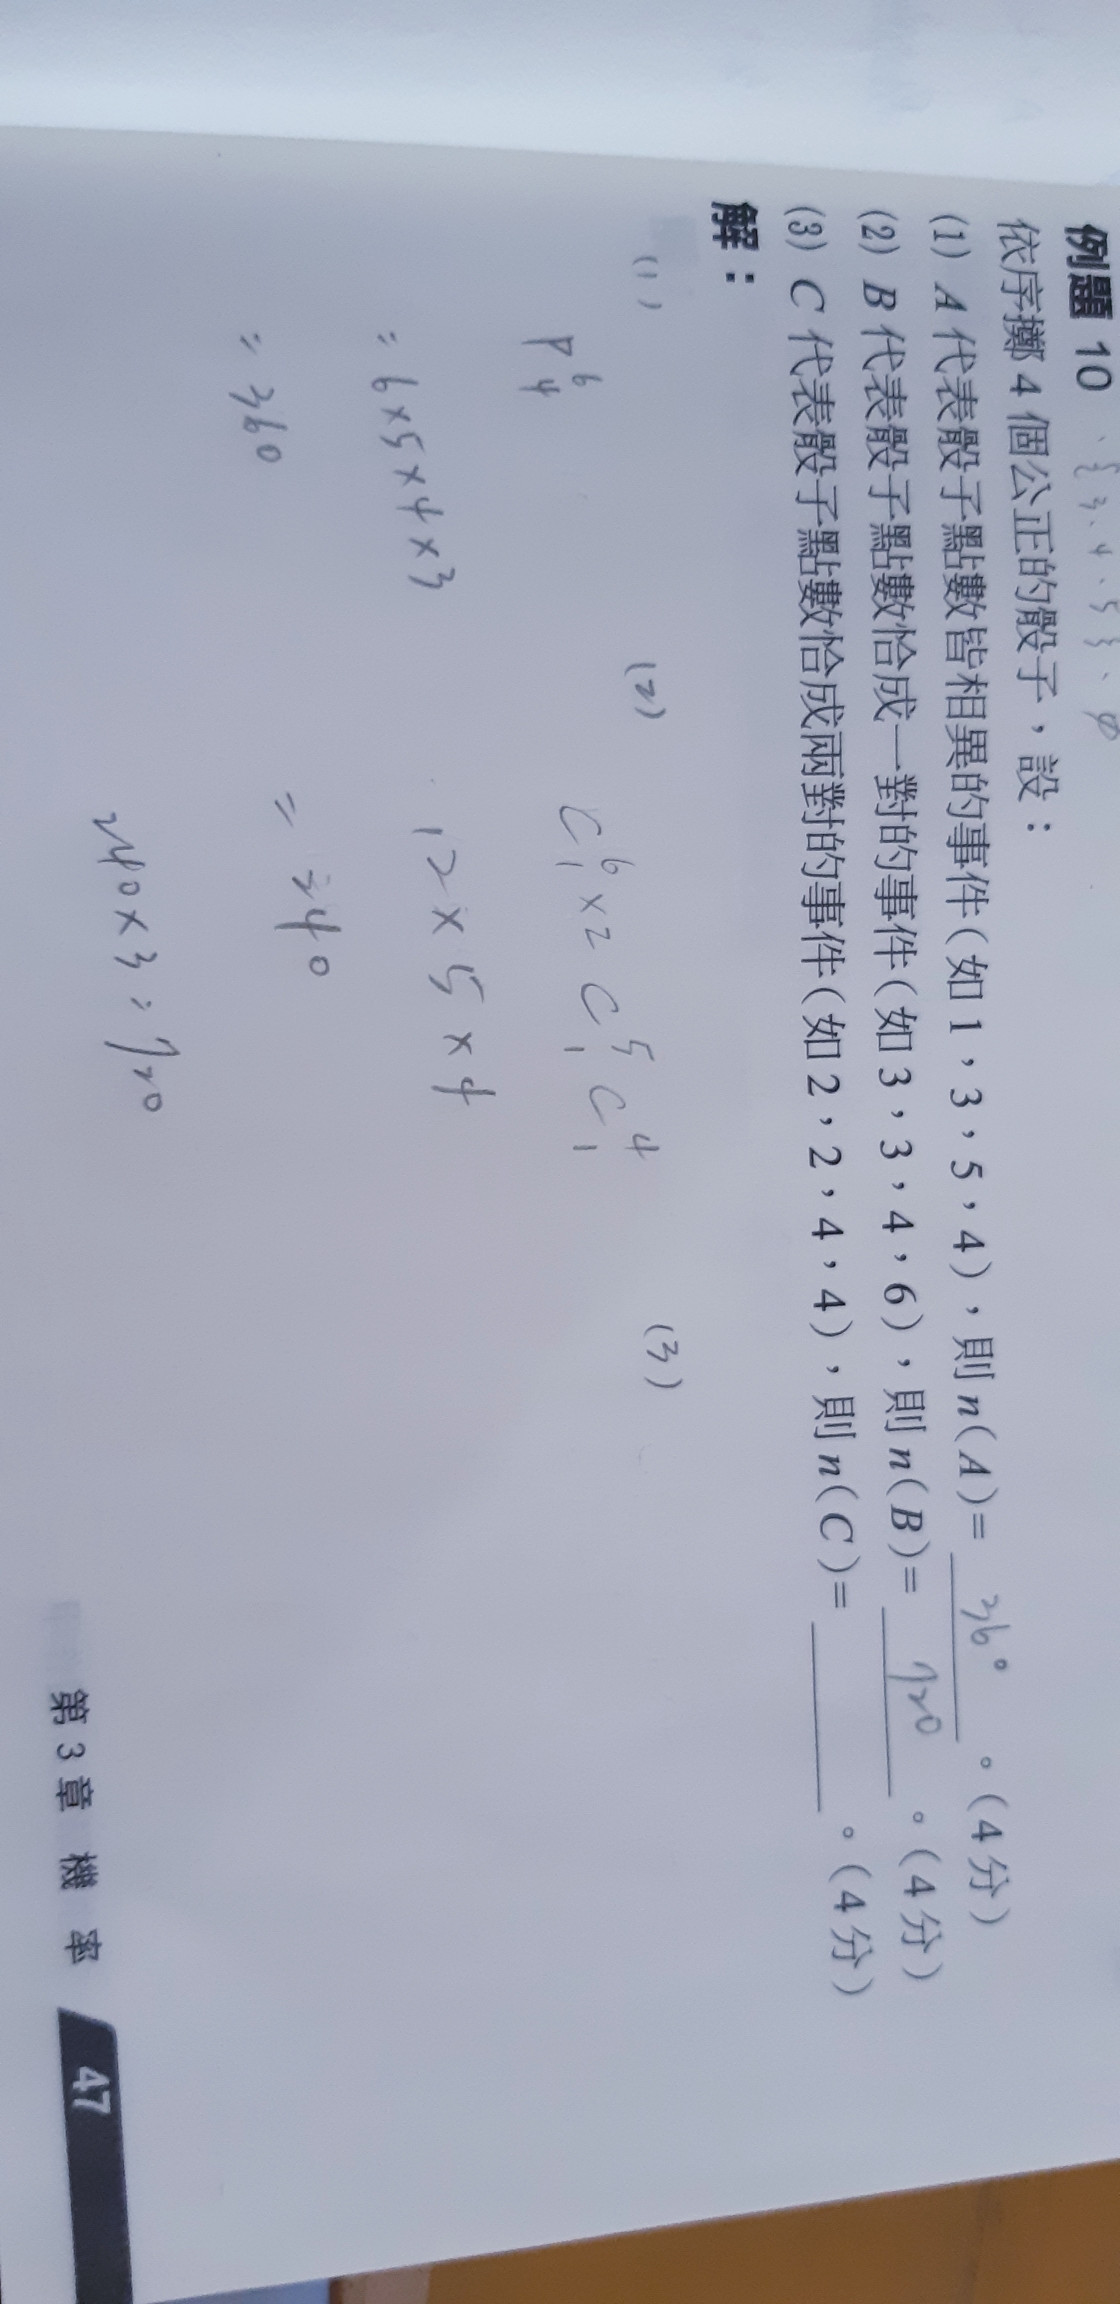 、{3、4、5}、φ
例題 10
依序擲 4 個公正的骰子，設：
(1) A 代表骰子點數皆相異的事件(如 1，3，5，4)，則 n(A)= 360 。(4 分)
(2) B 代表骰子點數恰成一對的事件(如 3，3，4，6)，則 n(B)= 720 。(4 分)
(3) C 代表骰子點數恰成兩對的事件(如 2，2，4，4)，則 n(C)= 。(4 分)
解：
(1)
P^6_4
= 6×5×4×3
= 360
(2)
C^6_1 ×2 C^5_1 C^4_1
12×5×4
= 240
240×3=720
(3)
第 3 章 機 率 47